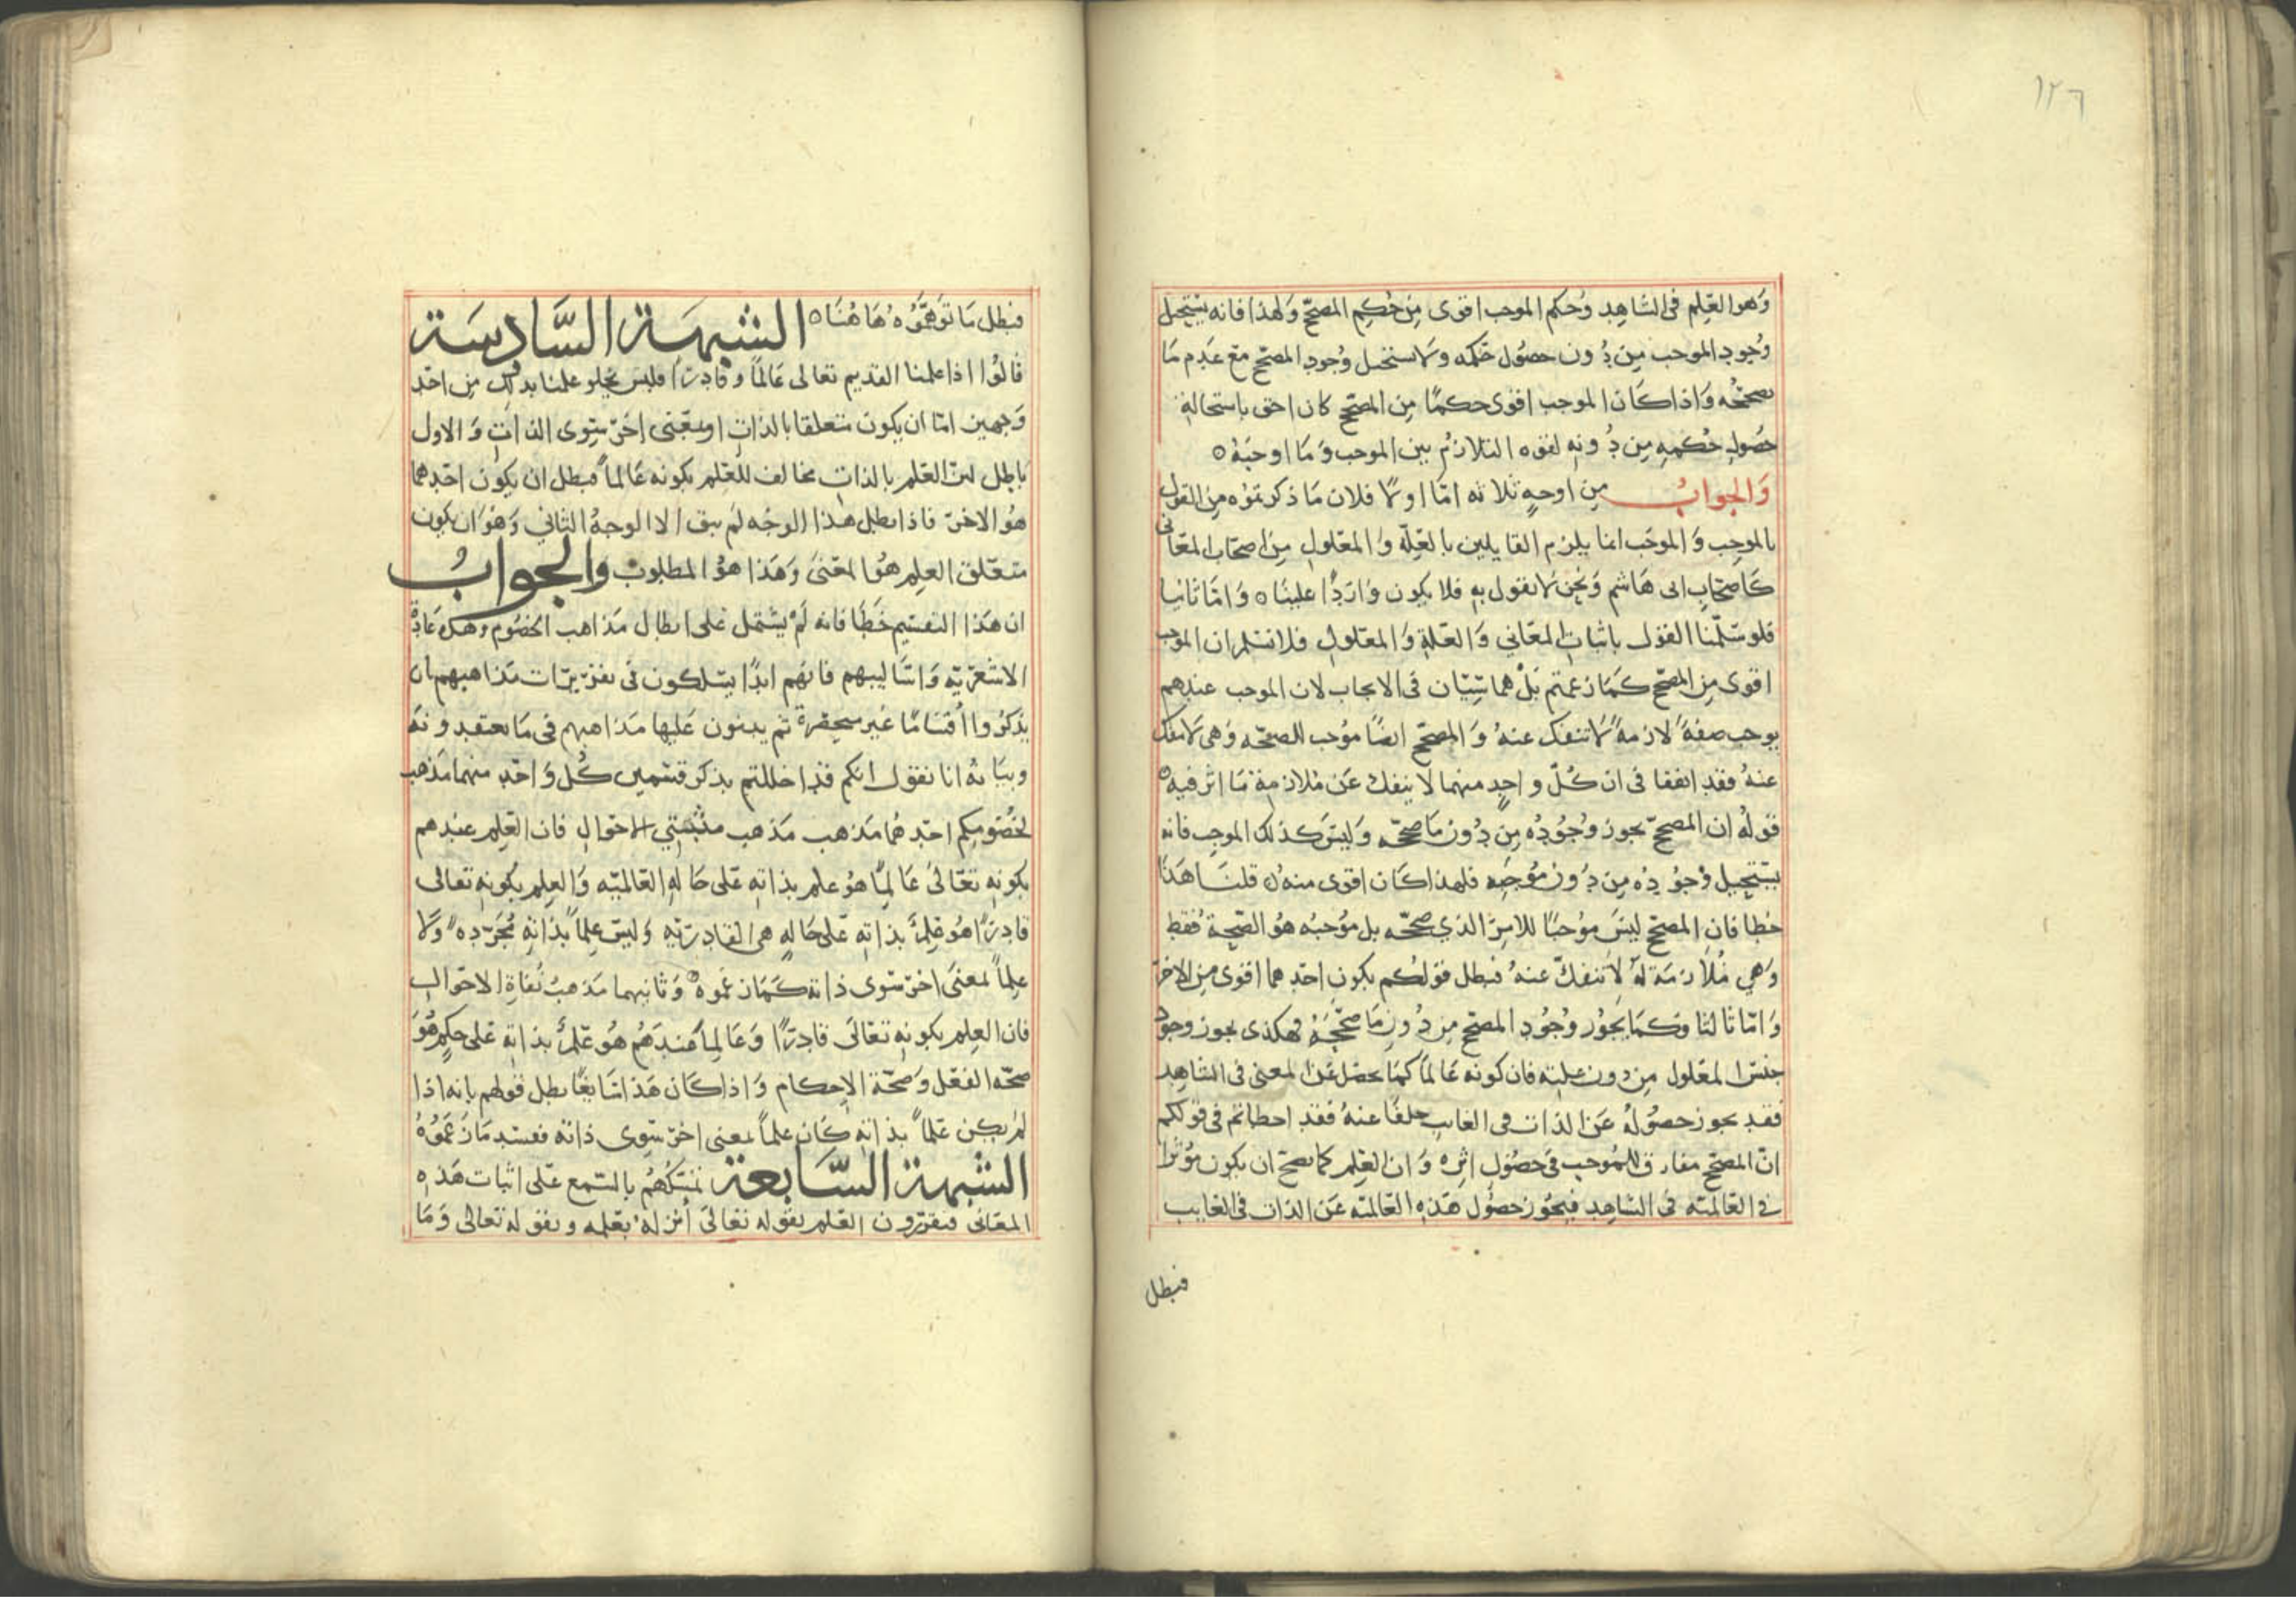 ١٢٦
وَهو العِلم فى الشاهِد وحكم الموجب اقوى مِن حُكمِ المصحّح وَلهذا فانه يستحيل
وُجود الموجب مِن دُون حصُول حكمه وَلا يستحيل وجود المصحّح مع عَدم مَا
يصححُه وَاذا كَان الموجب اقوى حكمًا مِن المصحّح كان احق باستحالةِ
حصُولِ حُكمِهِ مِن دُونهِ لقوه التلازُم بين الموجب وَمَا اوجبَهُ ه
وَالجوابُ مِن اوجهٍ ثلاثه امّا اولًا فلان مَا ذكرتموُه مِن القول
بالموجِب وَالموجَب انما يلزم القايلين بالعِلّه وَالمعلولِ مِن اصحَاب المعَانى
كَاصحَابِ ابى هَاشم وَنحن لا نقول بهِ فلا يكون وَارِدًا علينَا ه وَامّا ثانيا
فلو سَلّمنا القول باثباتِ المعَاني وَالعلةِ وَالمعلولِ فلا نسلم ان الموجب
اقوى مِن المصحّح كَمَا زعمتم بَلْ هما سِيّان فى الايجاب لان الموجب عندهم
يوجب صفةً لازمةً لا تنفك عنهُ وَالمصحّح ايضًا مُوجب للصحّه وَهى لا تنفك
عنهُ فقد اتفقا فى ان كُلّ واحِدٍ منهما لا ينفك عَن مُلازمة مَا اثر فيه ه
قولهُ ان المصحّح يجوز وُجُودُه مِن دُون مَا صححّه وَليسَ كذلك الموجِب فانه
يستحيل وُجوُدُه مِن دُون مُوجَبِه فلهذا كَان اقوى منه ه قلنَا هَذَا
خطا فان المصحّح ليسَ مُوجبًا للامرِ الذي صححّه بل مُوجبُه هُو الصّحةُ فقط
وَهي مُلازمَة لهُ لا تنفكّ عنهُ فبطل قولكُم بكون احَدِهما اقوى مِن الاخر
وَامّا ثالثا فكمَا يجوُز وُجُود المصحّح مِن دُون مَا صحّحَهُ فهكذى يجوز وجود
جنسَ المعلول مِن دون عليته فان كونه عَالمًا كمَا يحصل عَن المعنى فى الشاهِد
فقد يجوز حصُولهُ عَن الذات فى الغايب خلفًا عنهُ فقد اخطاتم فى قولكم
انّ المصحّح مفارق للمُوجب فى حصُول اثره وَان العِلم كما يصح ان يكون مؤثرًا
في العَالميّه فى الشاهِد فيجُوز حصُول هَذِه العَالميّه عَن الذات فى الغايب
فبطل
فبطل مَا توَهّموُه هَا هُنَا ه الشبهَة السَّادِسَة
قالوُا اذا علمنا القديم تعالى عَالمًا وَقادِرًا فليس يخلو علمنا بذلك مِن احَدِ
وَجهين امّا ان يكون متعلقا بالذاتِ او بمعنى اخرَ سِوى الذاتِ وَالاول
بَاطِل لانّ العلم بالذاتِ مخالف للعِلم بكونه عَالمًا فبطل ان يكون احدهما
هُو الاخر فاذا بطل هذا الوجُه لم يبق الا الوجهُ الثاني وَهُوَ ان يكون
متعّلق العِلم هوَ المعنىَ وَهَذا هوَ المطلوب وَالجوابُ
ان هَذا التقسِيم خَطَأ فانه لَمْ يشتمل عَلى ابطال مَذاهب الخصُوم وهذه عَادة
الاشعَريّه وَاسَاليبهم فانهم ابدًا يسلكون فى تقرِيرَات مَذاهبهم ان
يذكرُوا اقسَامًا غير منحصِرة ثم يبنون عَليها مَذاهبهم فى مَا يعتقدونه
وبيَانه انا نقول انكم قد اخللتم بذكر قسَمين كُلّ وَاحِد منهما مَذهب
لخصُومِكم احَدهمَا مَذهب مَذهب مثبتي الاحَوالِ فان العِلم عندهم
بكونهِ تعَالىَ عَالِمًا هوُ علم بذاته عَلى حَالهِ العَالميّه وَالعِلم بكونهِ تعَالى
قادِرًا هُو عِلمٌ بذاتهِ عَلى حَالهٍ هى القادِريّه وَليسَ علمًا بذاتهِ مُجَرّده وَلا
علِمًا لمعنىَ اخر سَوى ذاته كَمَا زعَموُه ه وَثانيهما مَذهبُ نُفاةِ الاحَوالِ
فان العِلم بكونهِ تعَالىَ قادِرًا وَعَالِمًا عندَهُم هُو عِلمٌ بذاتهِ عَلى حكِم هُو
صحّه الفعَل وَصحّة الاِحكام وَاذا كَان هَذا سَايغًا بطل قولهم بانه اذا
لم يكن عَلمًا بذاتهِ كَان علمًا لمعنى اخر سِوى ذاته ففسَد مَا زعَمُوهُ
الشبهَة السَّابعَة تمسّكُهُم بالسّمع عَلى اثبات هَذِه
المعَانى فيقرّرون العَلم بقوله تعَالىَ أنزلهُ بعلمه وبقوله تعَالى وَمَا